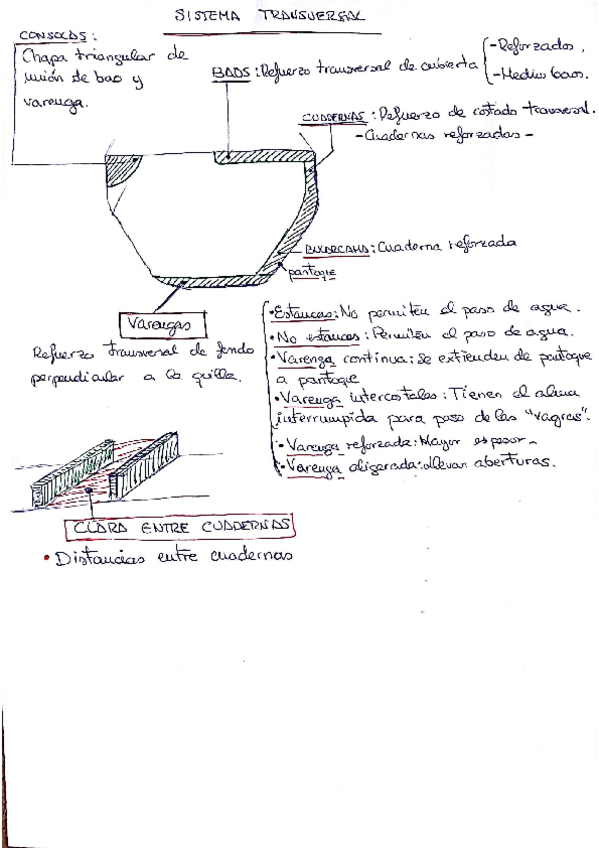 SISTEMA TRANSVERSAL
CONSOLAS:
Chapa triangular de
unión de bao y
varenga.
BAOS: Refuerzo transversal de cubierta
-Reforzados.
-Medios baos.
CUADERNAS: Refuerzo de costado transversal.
-Cuadernas reforzadas-
BULARCAMA: Cuaderna reforzada
pantoque
Varengas
Refuerzo transversal de fondo
perpendicular a la quilla.
•Estancas: No permiten el paso de agua.
•No estancas: Permiten el paso de agua.
•Varenga continua: se extienden de pantoque
a pantoque
•Varenga intercostales: Tienen el alma
interrumpida para paso de las "vagras".
•Varenga reforzada: Mayor espesor-
•Varenga aligerada: llevan aberturas.
CLARA ENTRE CUADERNAS
• Distancias entre cuadernas